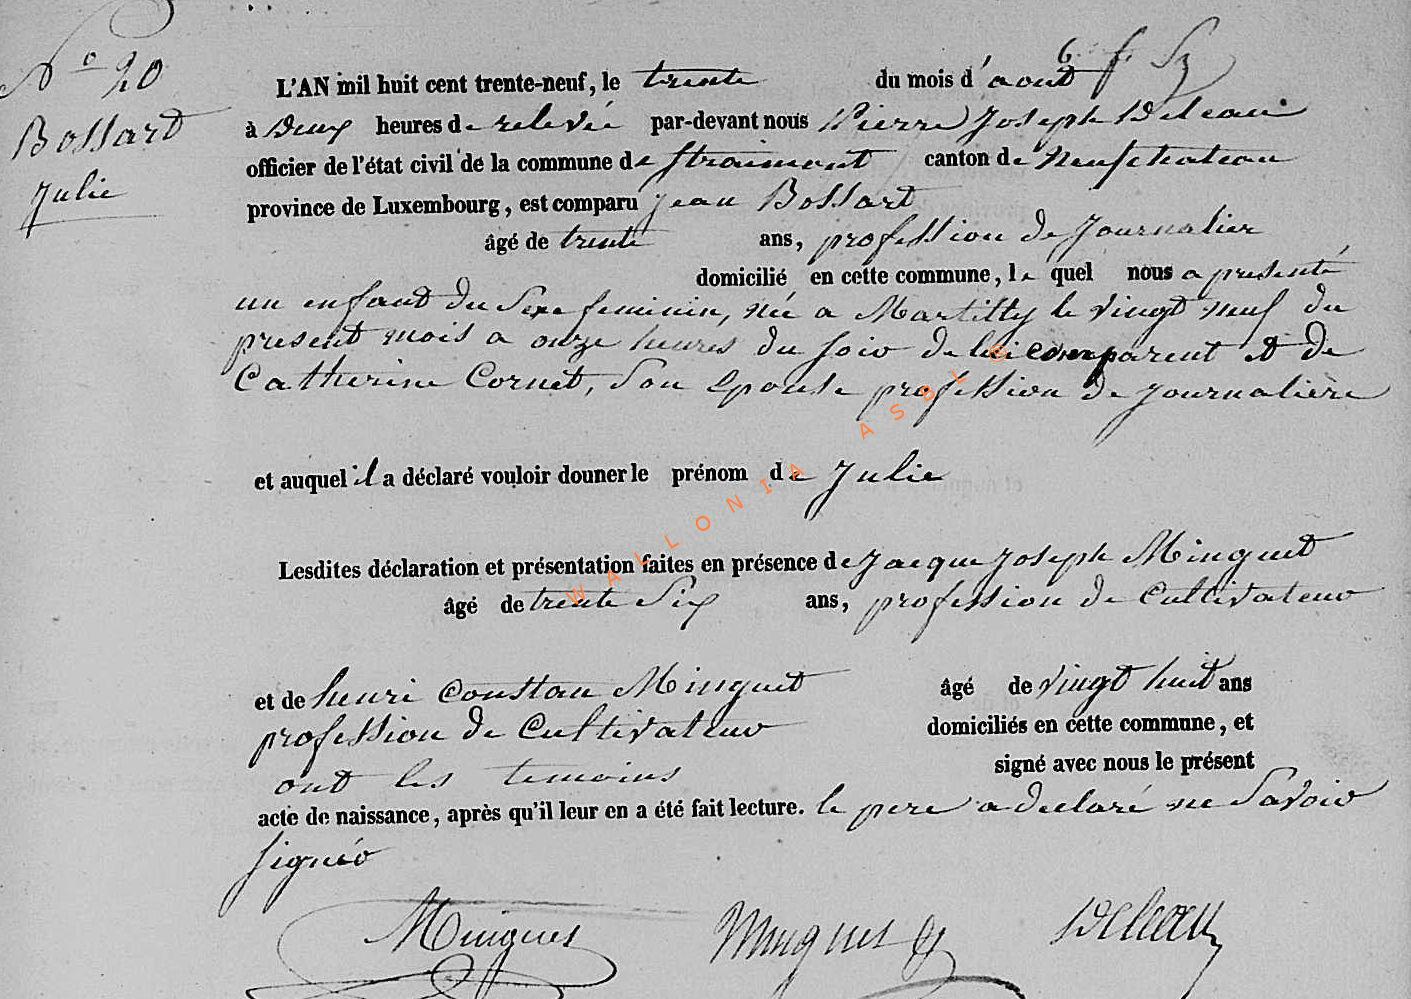 N° 20
Bossart
Julie
L'AN mil huit cent trente-neuf, le trente du mois d'aout
à Deux heures de relevée par-devant nous Pierre Joseph Deleau
officier de l'état civil de la commune de Straimont canton de Neufchateau
province de Luxembourg, est comparu Jean Bossart
âgé de trente ans, profession de Journalier
domicilié en cette commune, le quel nous a presenté
un enfant du Sexe feminin, née a Martilly le vingt neuf du
present mois a onze heures du soir de lui comparent et de
Catherine Cornet, Son Epouse profession de Journalière
et auquel il a déclaré vouloir donner le prénom de Julie
Lesdites déclaration et présentation faites en présence de Jacque Joseph Minguet
âgé de trente Six ans, profession de Cultivateur
et de henri Constan Minguet âgé de vingt huit ans
profession de Cultivateur domiciliés en cette commune, et
ont les temoins signé avec nous le présent
acte de naissance, après qu'il leur en a été fait lecture. le pere a declaré ne Savoir
signér
Minguet Minguet Deleau
WALLONIA ASBL ©